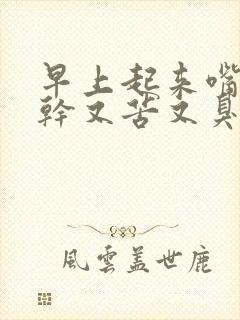 早上起来嘴
幹又苦又臭
風雲盖世鹿